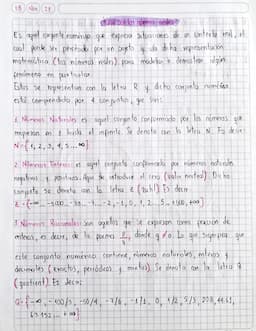 13 Nov 23
Es aquel conjunto numérico que expresa situaciones de un contexto real, el
cual puede ser prestado por un sujeto y da dicha representación
matemática (los números reales) para modelar o demostrar algún
fenómeno en particular.
Estos se representan con la letra R y dicho conjunto numérico
está comprendido por 4 conjuntos, que son:
1. Números Naturales es aquel conjunto conformado por los números que
empiezan en 1 hasta el infinito. Se denota con la letra N. Es decir
N={1, 2, 3, 4, 5...∞}
2. Números Enteros: es aquel conjunto conformado por números naturales
negativos y positivos. Aquí se introduce el cero (valor neutral). Dicho
conjunto se denota con la letra Z (Zahl). Es decir
Z={-∞...-1.000...-3...-2,-1,0,1,2...5...1.000,+∞}
3. Números Racionales: son aquellos que se expresan como fracción de
enteros, es decir, de la forma p/q donde q≠0. Lo que significa que
este conjunto numérico contiene, números naturales, enteros y
decimales (exactos, periódicos y mixtos). Se denota con la letra Q
(quotient). Es decir:
Q={-∞,-100/3,-50/4,-7/6,-1/1,0,1/2,5/3,